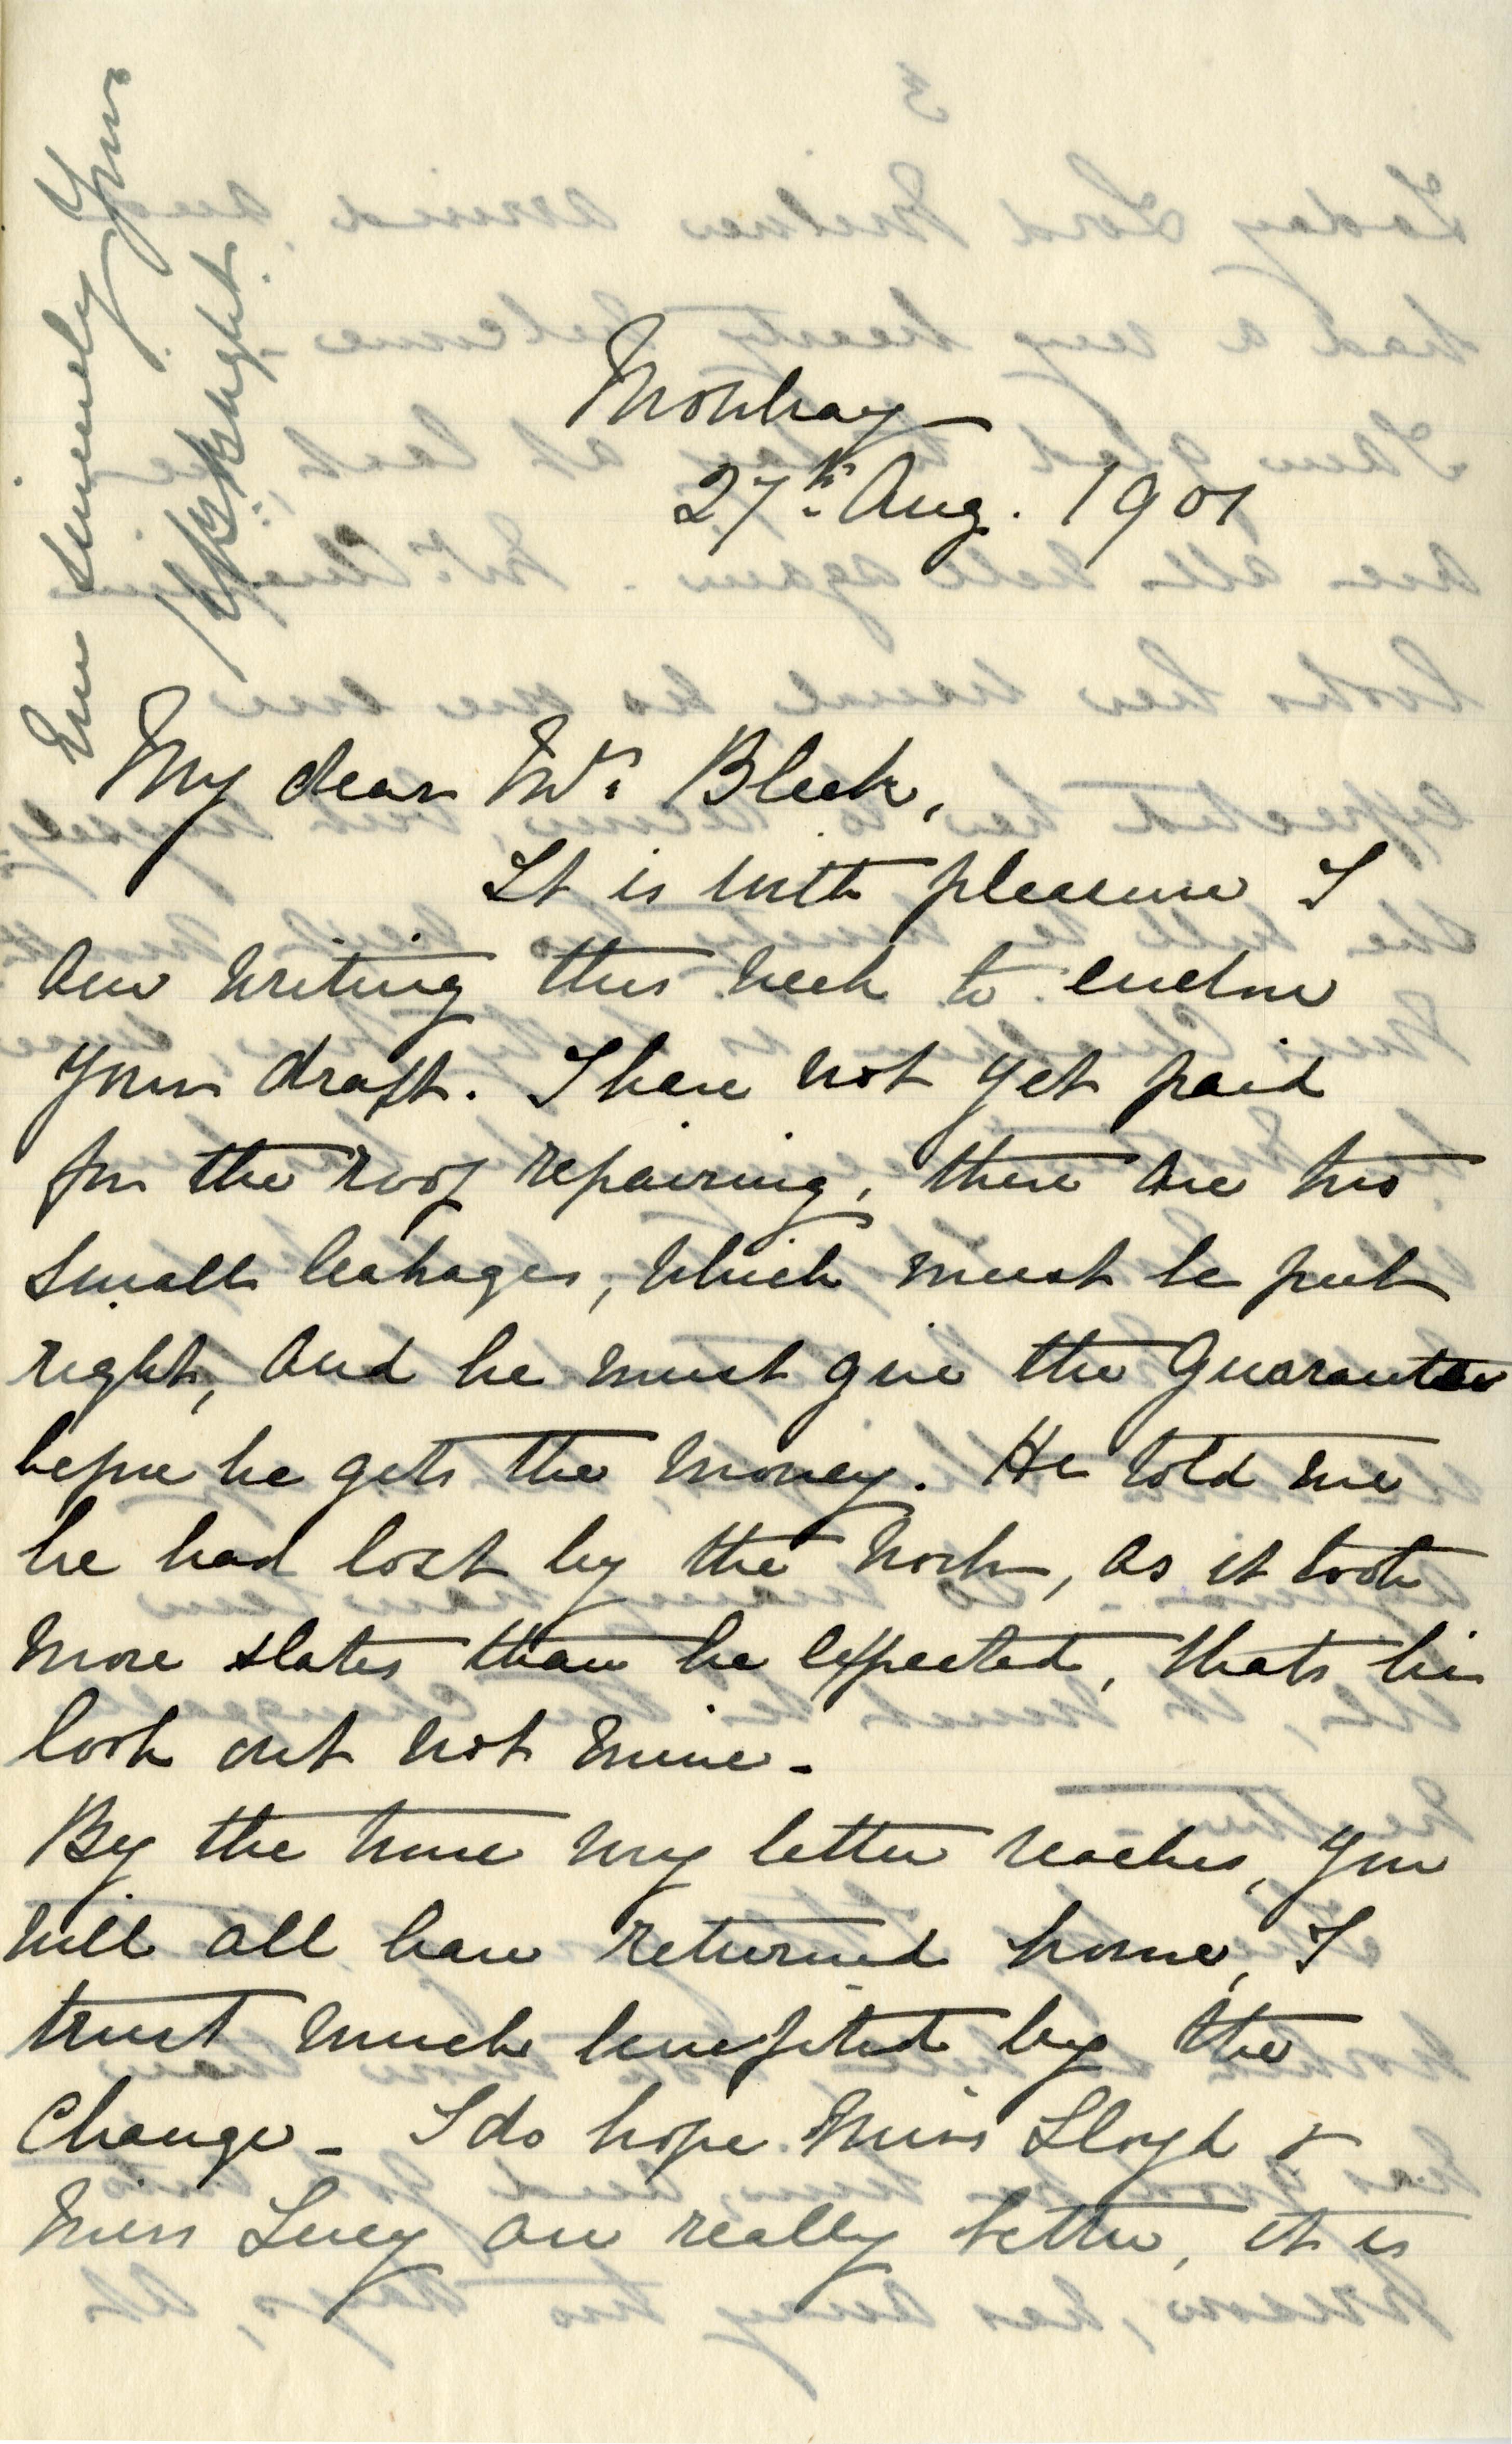 Mowbray
27th Aug. 1901
My dear Mrs Bleek,
It is with pleasure I
am writing this week to enclose
your draft. I have not yet paid
for the roof repairing, there are two
small leakages, which must be put
right, and he must give the Guarantee
before he gets the money. He told me
he had lost by the work, as it took
more slates than he expected, thats his
look out not mine -
By the time my letter reaches, you
will all have returned home, I
trust much benefited by the
change - I do hope Miss Lloyd &
Miss Lucy are really better, it is
Ever sincerely Yours